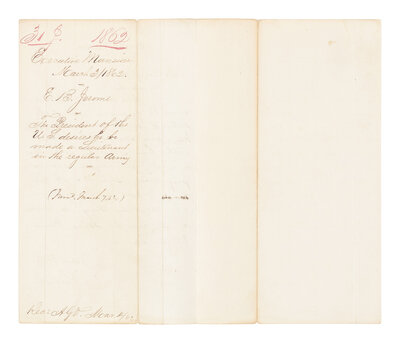 31 J. 1862
Executive Mansion
March 3/1862.
E. B. Jerome
The President of the
U.S. desires to be
made a Lieutenant
in the regular Army
March
Rec'd A.G.O. Mar. 4/62